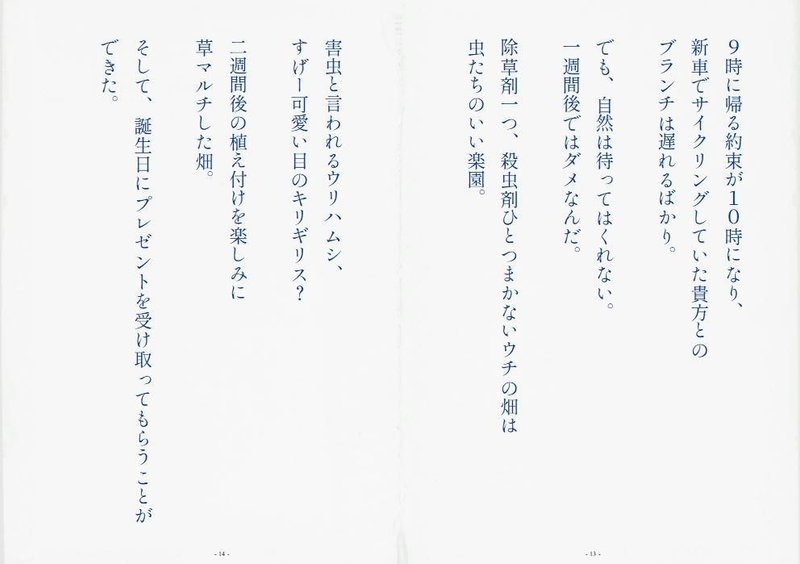 9時に帰る約束が10時になり、
新車でサイクリングしていた貴方との
ブランチは遅れるばかり。
でも、自然は待ってはくれない。
一週間後ではダメなんだ。
除草剤一つ、殺虫剤ひとつまかないウチの畑は
虫たちのいい楽園。
- 13 -
害虫と言われるウリハムシ、
すげー可愛い目のキリギリス？
二週間後の植え付けを楽しみに
草マルチした畑。
そして、誕生日にプレゼントを受け取ってもらうことが
できた。
- 14 -